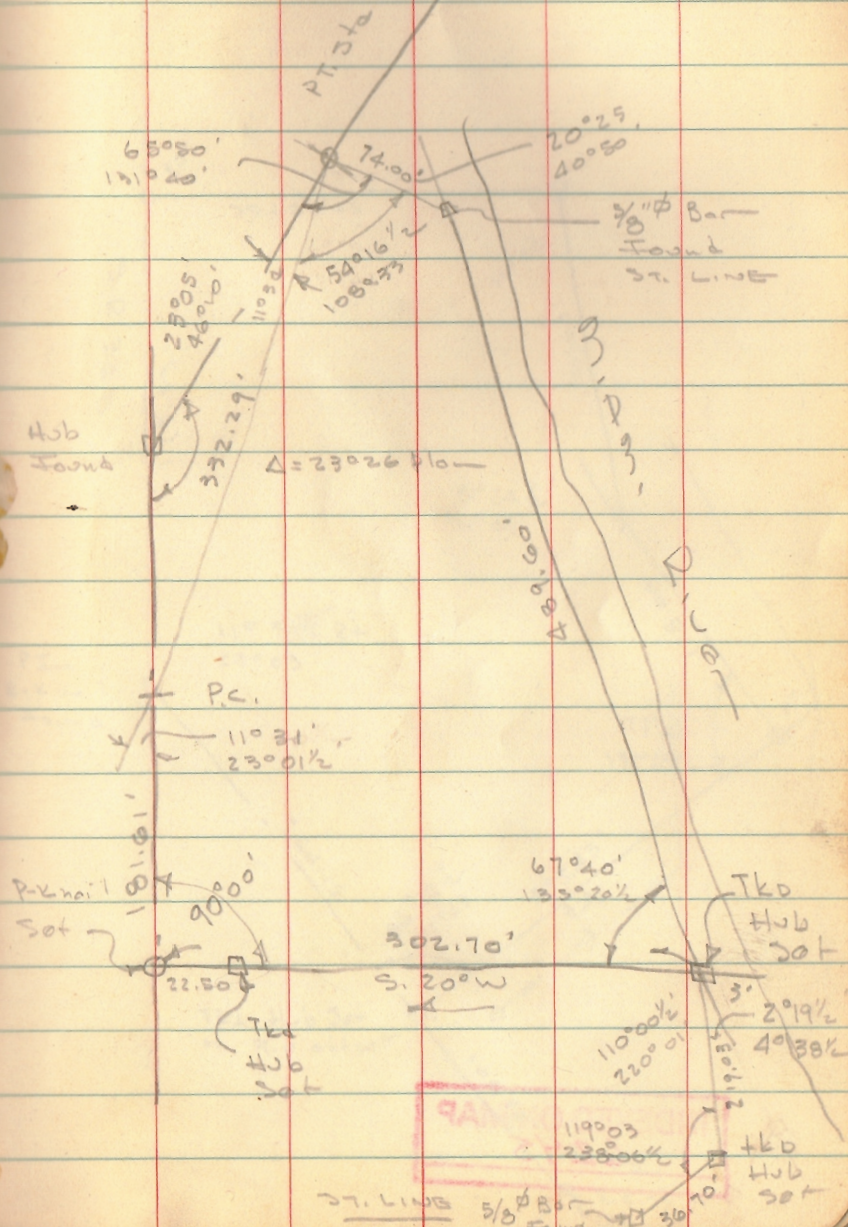 PT. Sta
65°50'
131°40'
74.00'
20°25
40°50'
5/8"Ø Bar
Found
ST. LINE
54°16½
108°33
23°05'
46°10'
332.29'
Hub
Found
Δ = 23°26 Plan
489.60'
River
P.C.
11°31'
23°01½'
181.61'
P-K nail
Set
90°00'
67°40'
135°20½
Tkd
Hub
Set
302.70'
22.50
S. 20° W
3'
Tkd
Hub
Set
110°00½'
220°01'
2°19½
4°38½
119°03
238°06½
tkd
Hub
Set
36.70
ST. LINE
5/8"Ø Bar